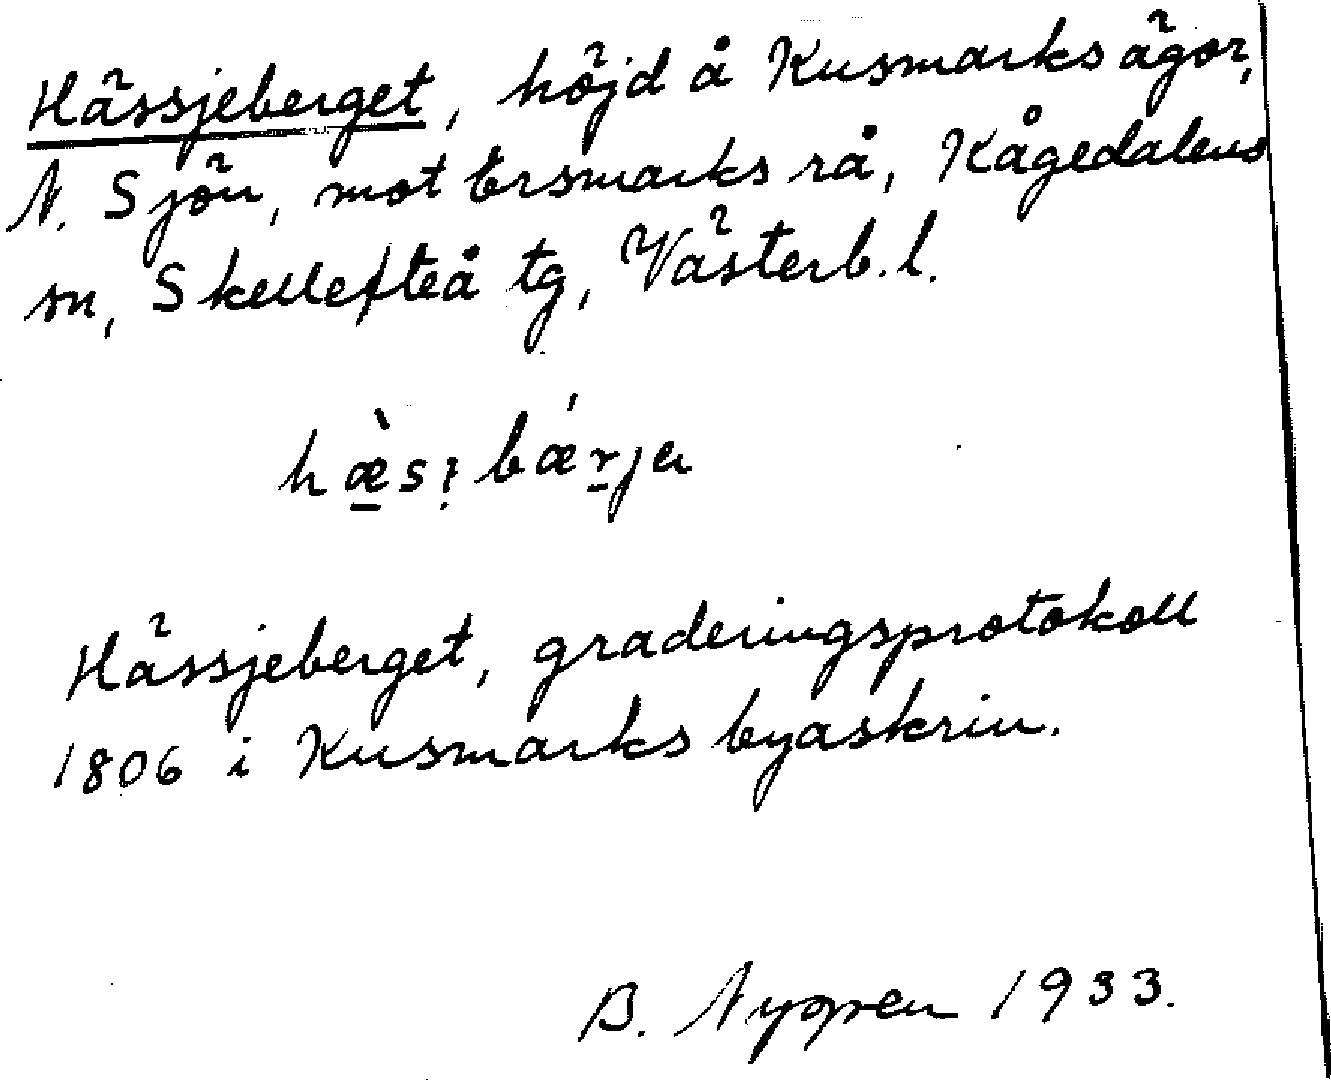 Hässjeberget, höjd å Kusmarks ägor,
N. Sjön, mot Ersmarks rå, Kågedalens
sn, Skellefteå tg, Västerb. l.
hæ̀sı̣bǽrja
Hässjeberget, graderingsprotokoll
1806 i Kusmarks byaskrin.
B. Nygren 1933.